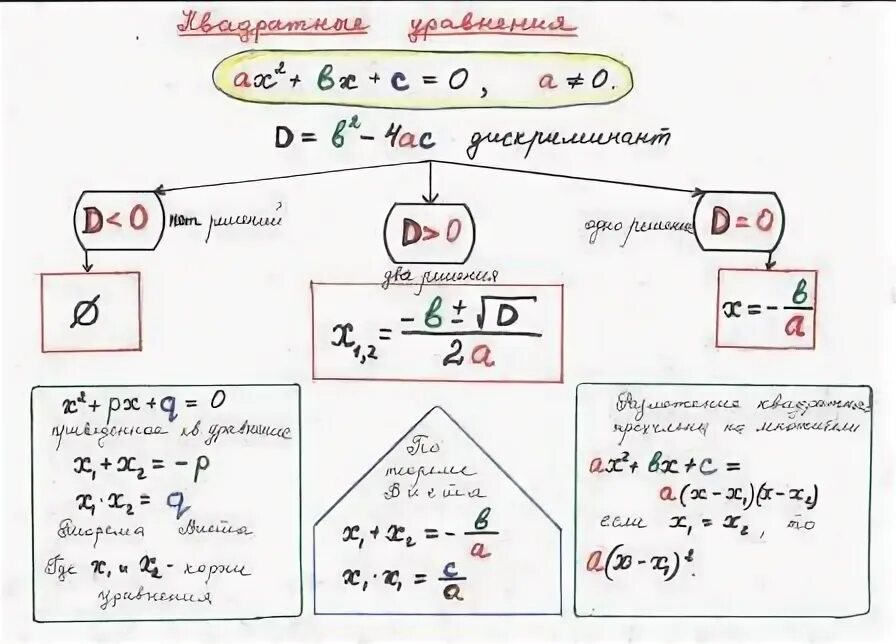 Квадратные уравнения
ax² + bx + c = 0, a ≠ 0.
D = b² - 4ac дискриминант
D < 0 нет решений
D > 0
одно решение D = 0
два решения
∅
x₁,₂ = (-b ± √D) / 2a
x = - b/a
x² + px + q = 0
приведённое кв. уравнение
x₁ + x₂ = -p
x₁ · x₂ = q
Теорема Виета
Где x₁ и x₂ - корни
уравнения
По
теореме
Виета
x₁ + x₂ = - b/a
x₁ · x₁ = c/a
Разложение квадратного
трёхчлена на множители
ax² + bx + c =
a(x - x₁)(x - x₂)
если x₁ = x₂, то
a(x - x₁)².